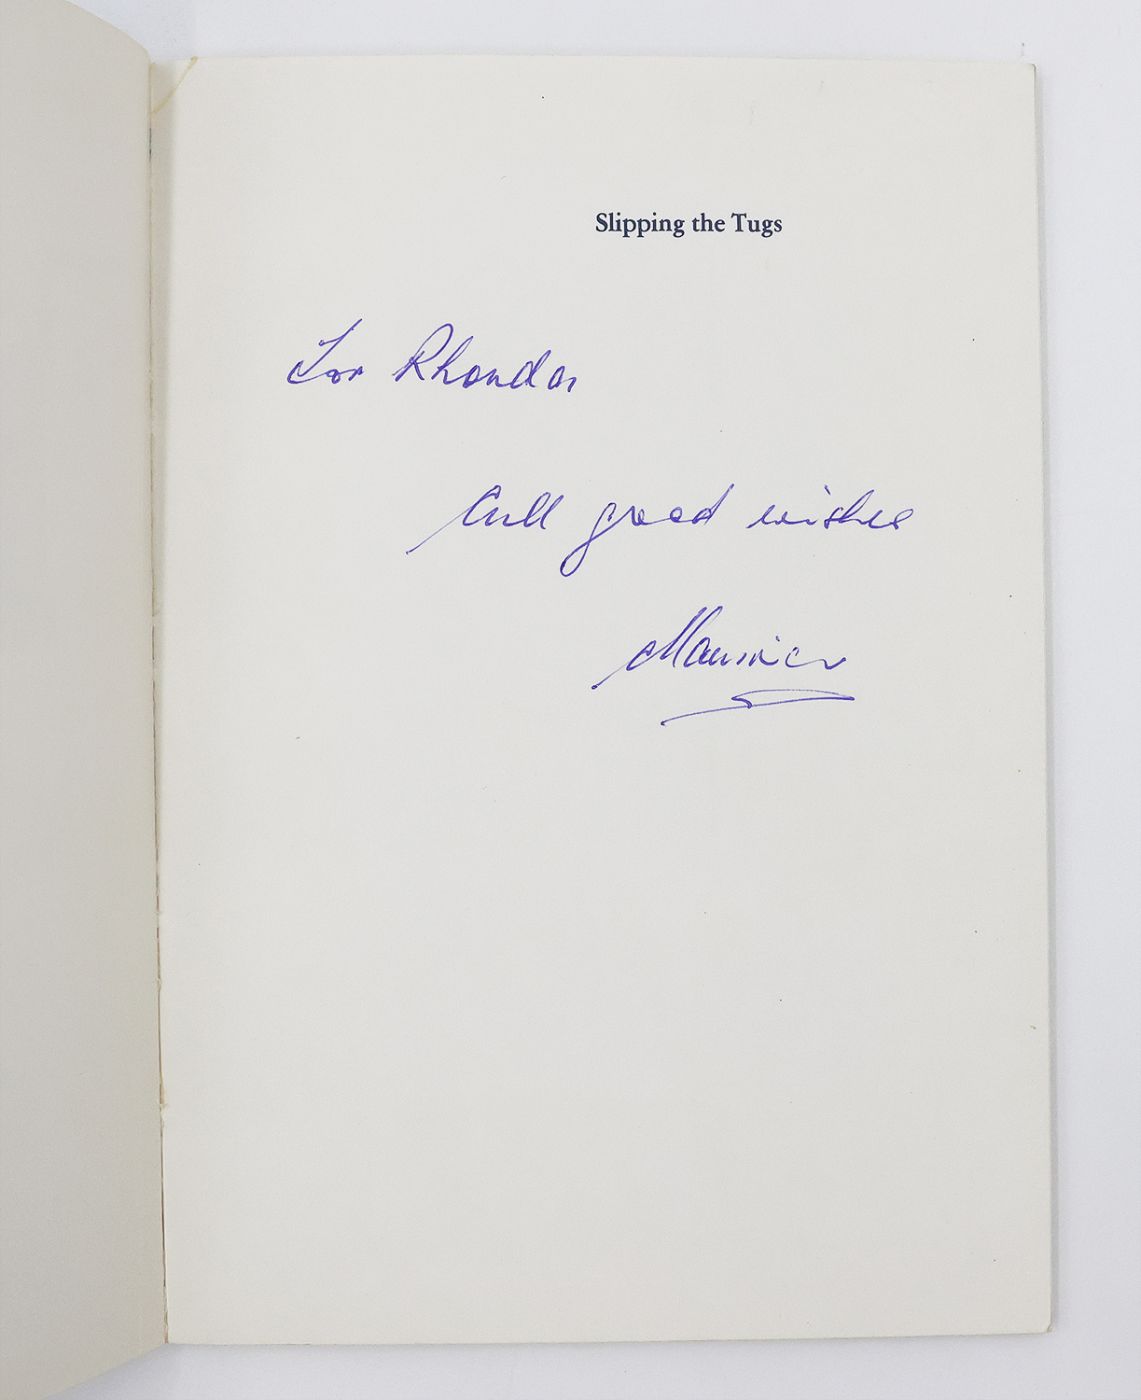 Slipping the Tugs
For Rhonda
All good wishes
Maurice